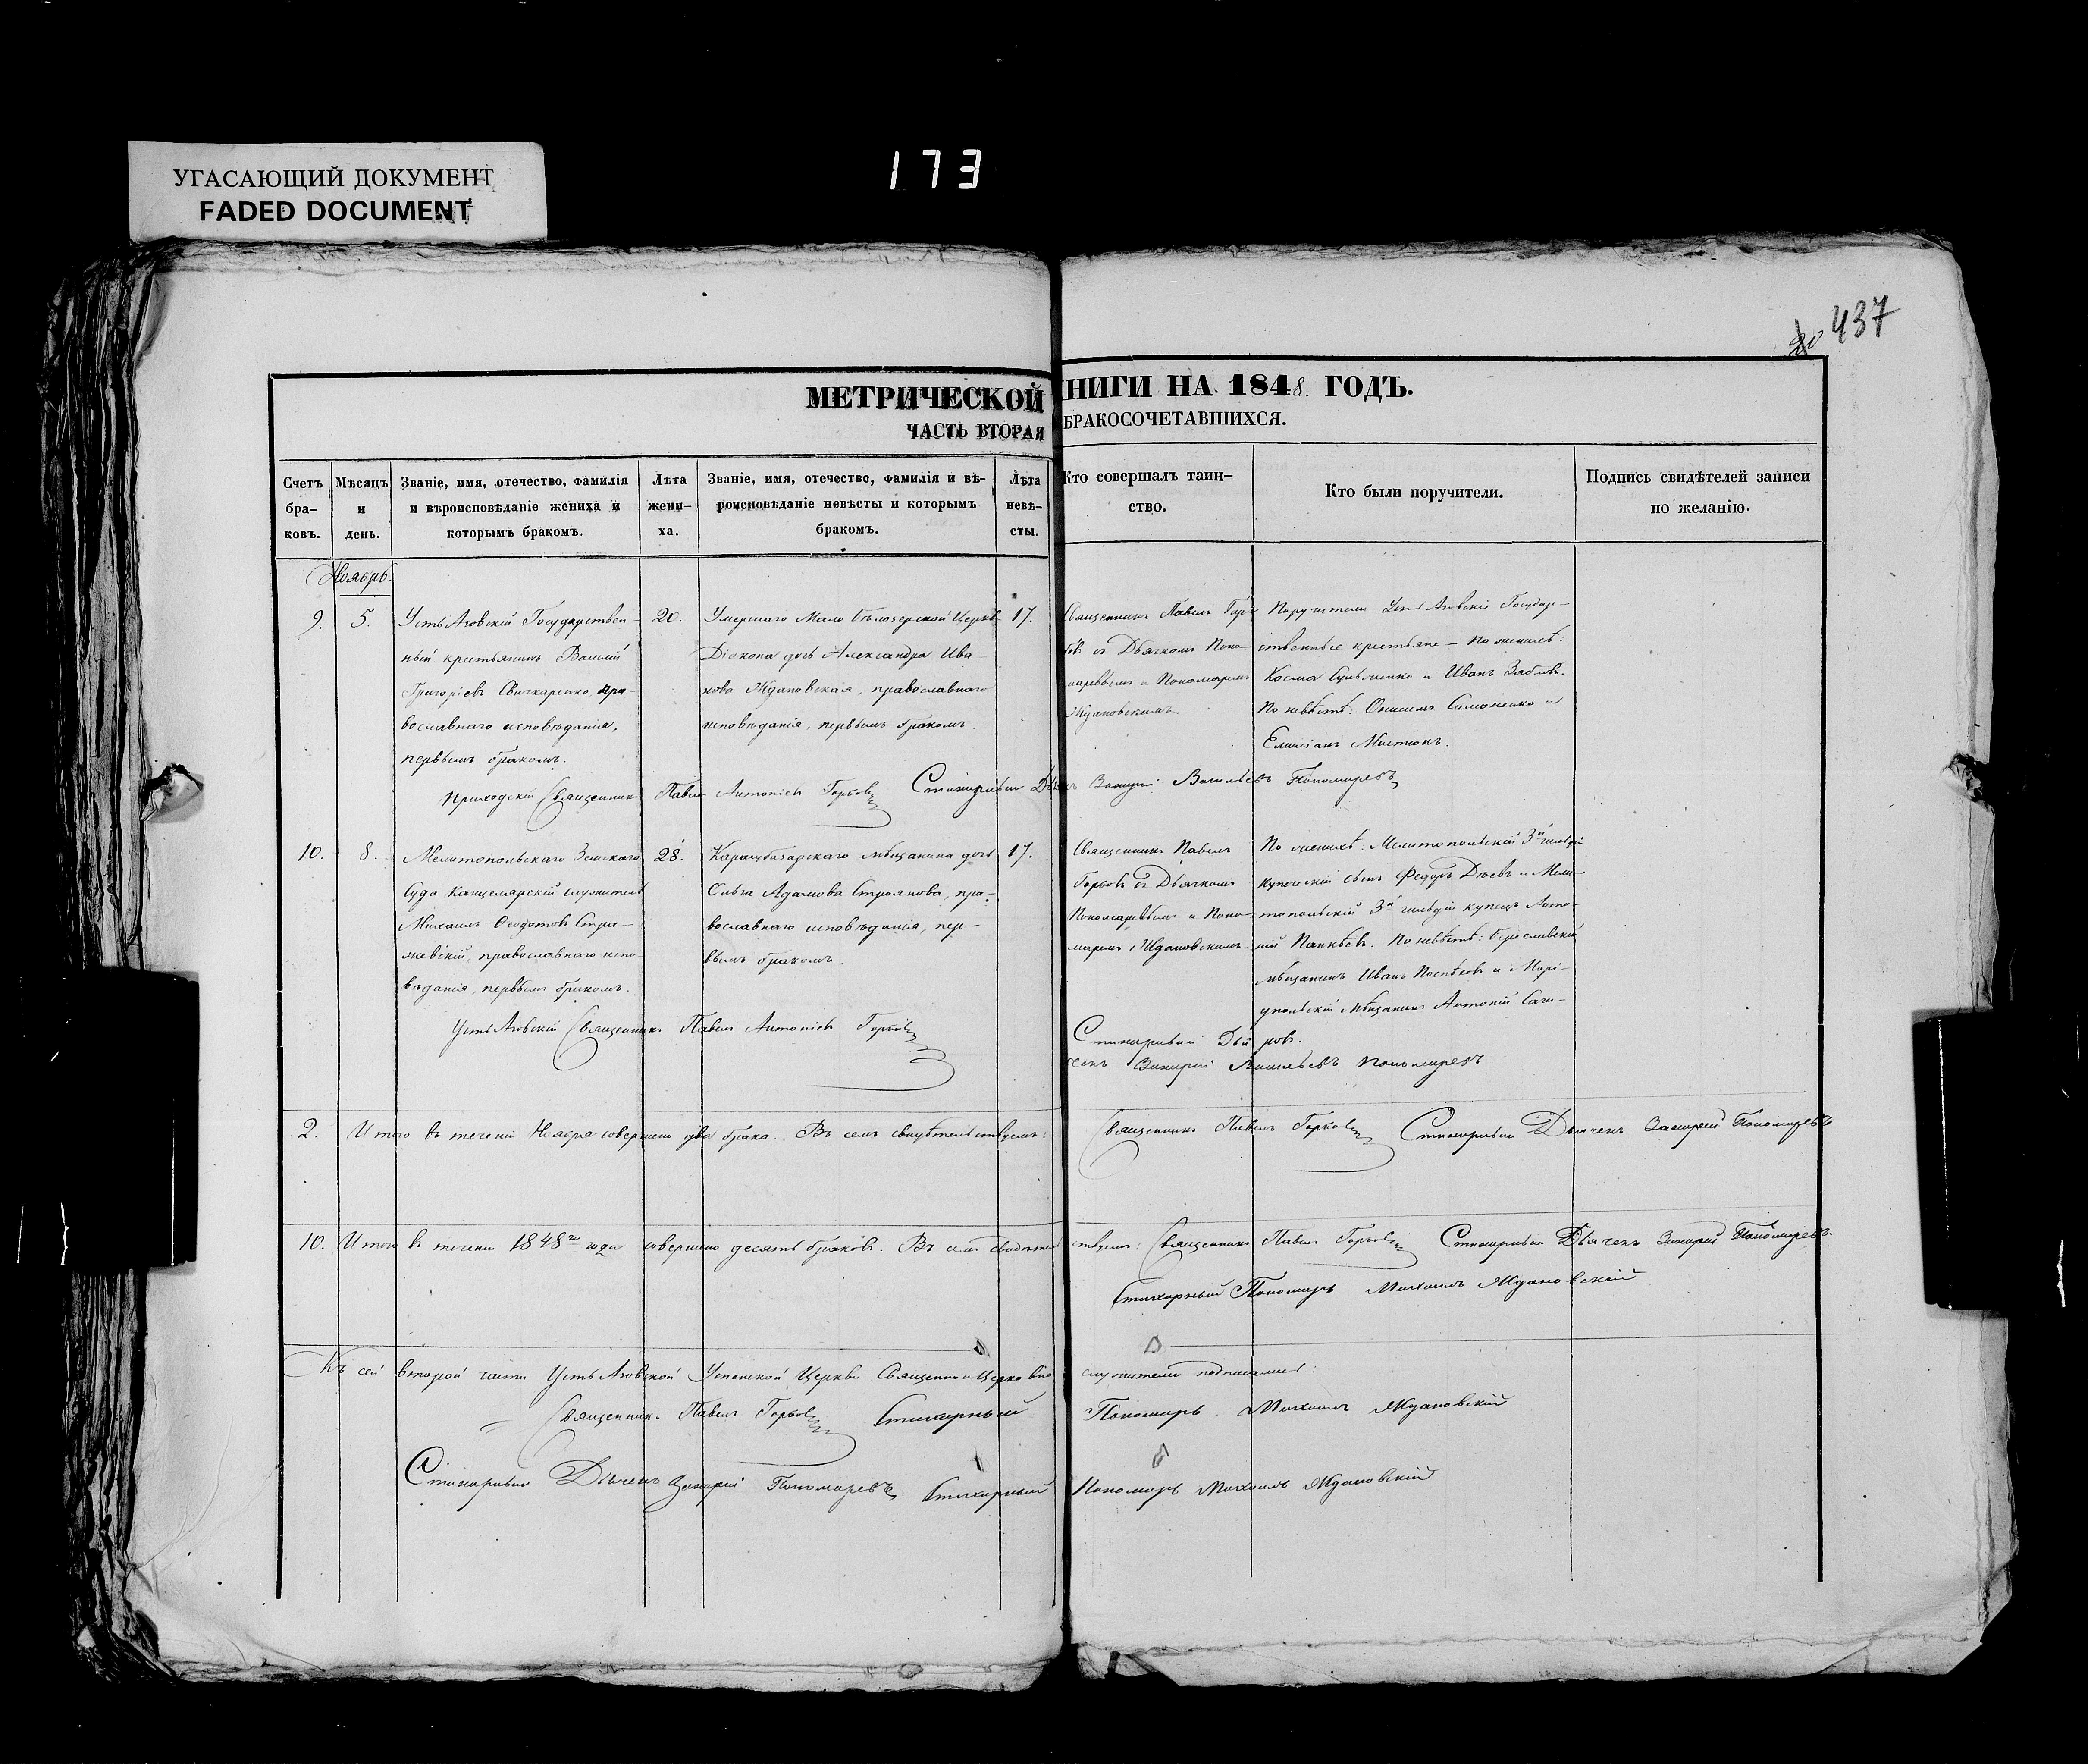 173
УГАСАЮЩИЙ ДОКУМЕНТ
FADED DOCUMENT
20 437
МЕТРИЧЕСКОЙ КНИГИ НА 1848. ГОДЪ.
ЧАСТЬ ВТОРАЯ БРАКОСОЧЕТАВШИХСЯ.
Счетъ бра-
ковъ.
Мѣсяцъ
и
день.
Званіе, имя, отечество, фамилія
и вѣроисповѣданіе жениха и
которымъ бракомъ.
Лѣта
жени-
ха.
Званіе, имя, отечество, фамилія и вѣ-
роисповѣданіе невѣсты и которымъ
бракомъ.
Лѣта
невѣ-
сты.
Кто совершалъ таин-
ство.
Кто были поручители.
Подпись свидѣтелей записи
по желанію.
Ноябрь.
9.
5.
Усть Азовскій Государствен-
ный крестьянинъ Василій
Григоріевъ Свичкаренко, пра-
вославнаго исповѣданія,
первымъ бракомъ.
20.
Умершаго Мало Бѣлозерской Церкви
Діакона дочь Александра Ива-
нова Ждановская, православнаго
исповѣданія, первымъ бракомъ.
17.
Священникъ Павелъ Гор-
бовъ съ Дьячкомъ Поно-
маревымъ и Пономаремъ
Ждановскимъ.
Поручители Усть Азовскіе Государ-
ственные крестьяне – По женихѣ:
Косма и Иванъ
По невѣстѣ: Онисимъ Симоненко и
Приходскій Священникъ Павелъ Антоніевъ Горбовъ Стихарный Дьячекъ Захарій Васильевъ Пономаревъ
10.
8.
Мелитопольскаго Земскаго
Суда Канцелярскій служитель
Михаилъ Ѳеодотовъ Стра-
жевскій, православнаго испо-
вѣданія, первымъ бракомъ.
28.
Карасубазарскаго мѣщанина дочь
Ольга Адамова Строянова, пра-
вославнаго исповѣданія, пер-
вымъ бракомъ.
17.
Священникъ Павелъ
Горбовъ съ Дьячкомъ
Пономаревымъ и Поно-
маремъ Ждановскимъ.
По женихѣ: Мелитопольскій 3й гильдіи
купеческій сынъ Федоръ и Мели-
топольскій 3й гильдіи купецъ Анто-
ній По невѣстѣ: Бериславскій
мѣщанинъ Иванъ и Марі-
упольскій мѣщанинъ Антоній Сахи-
ровъ.
Усть Азовскій Священникъ Павелъ Антоніевъ Горбовъ
Стихарный Дья-
чекъ Захарій Васильевъ Пономаревъ
2. Итого въ теченіи Ноября совершено два брака. Въ семъ свидѣтельствуемъ: Священникъ Павелъ Горбовъ Стихарный Дьячекъ Захарій Пономаревъ
10. Итого въ теченіи 1848го года совершено десять браковъ. Въ семъ свидѣтельствуемъ: Священникъ Павелъ Горбовъ Стихарный Дьячекъ Захарій Пономаревъ.
Стихарный Пономарь Михаилъ Ждановскій
Къ сей второй части Усть Азовской Успенской Церкви Священно и Церковно служители подписались:
Священникъ Павелъ Горбовъ Стихарный Пономарь Михаилъ Ждановскій
Стихарный Дьячекъ Захарій Пономаревъ Стихарный Пономарь Михаилъ Ждановскій